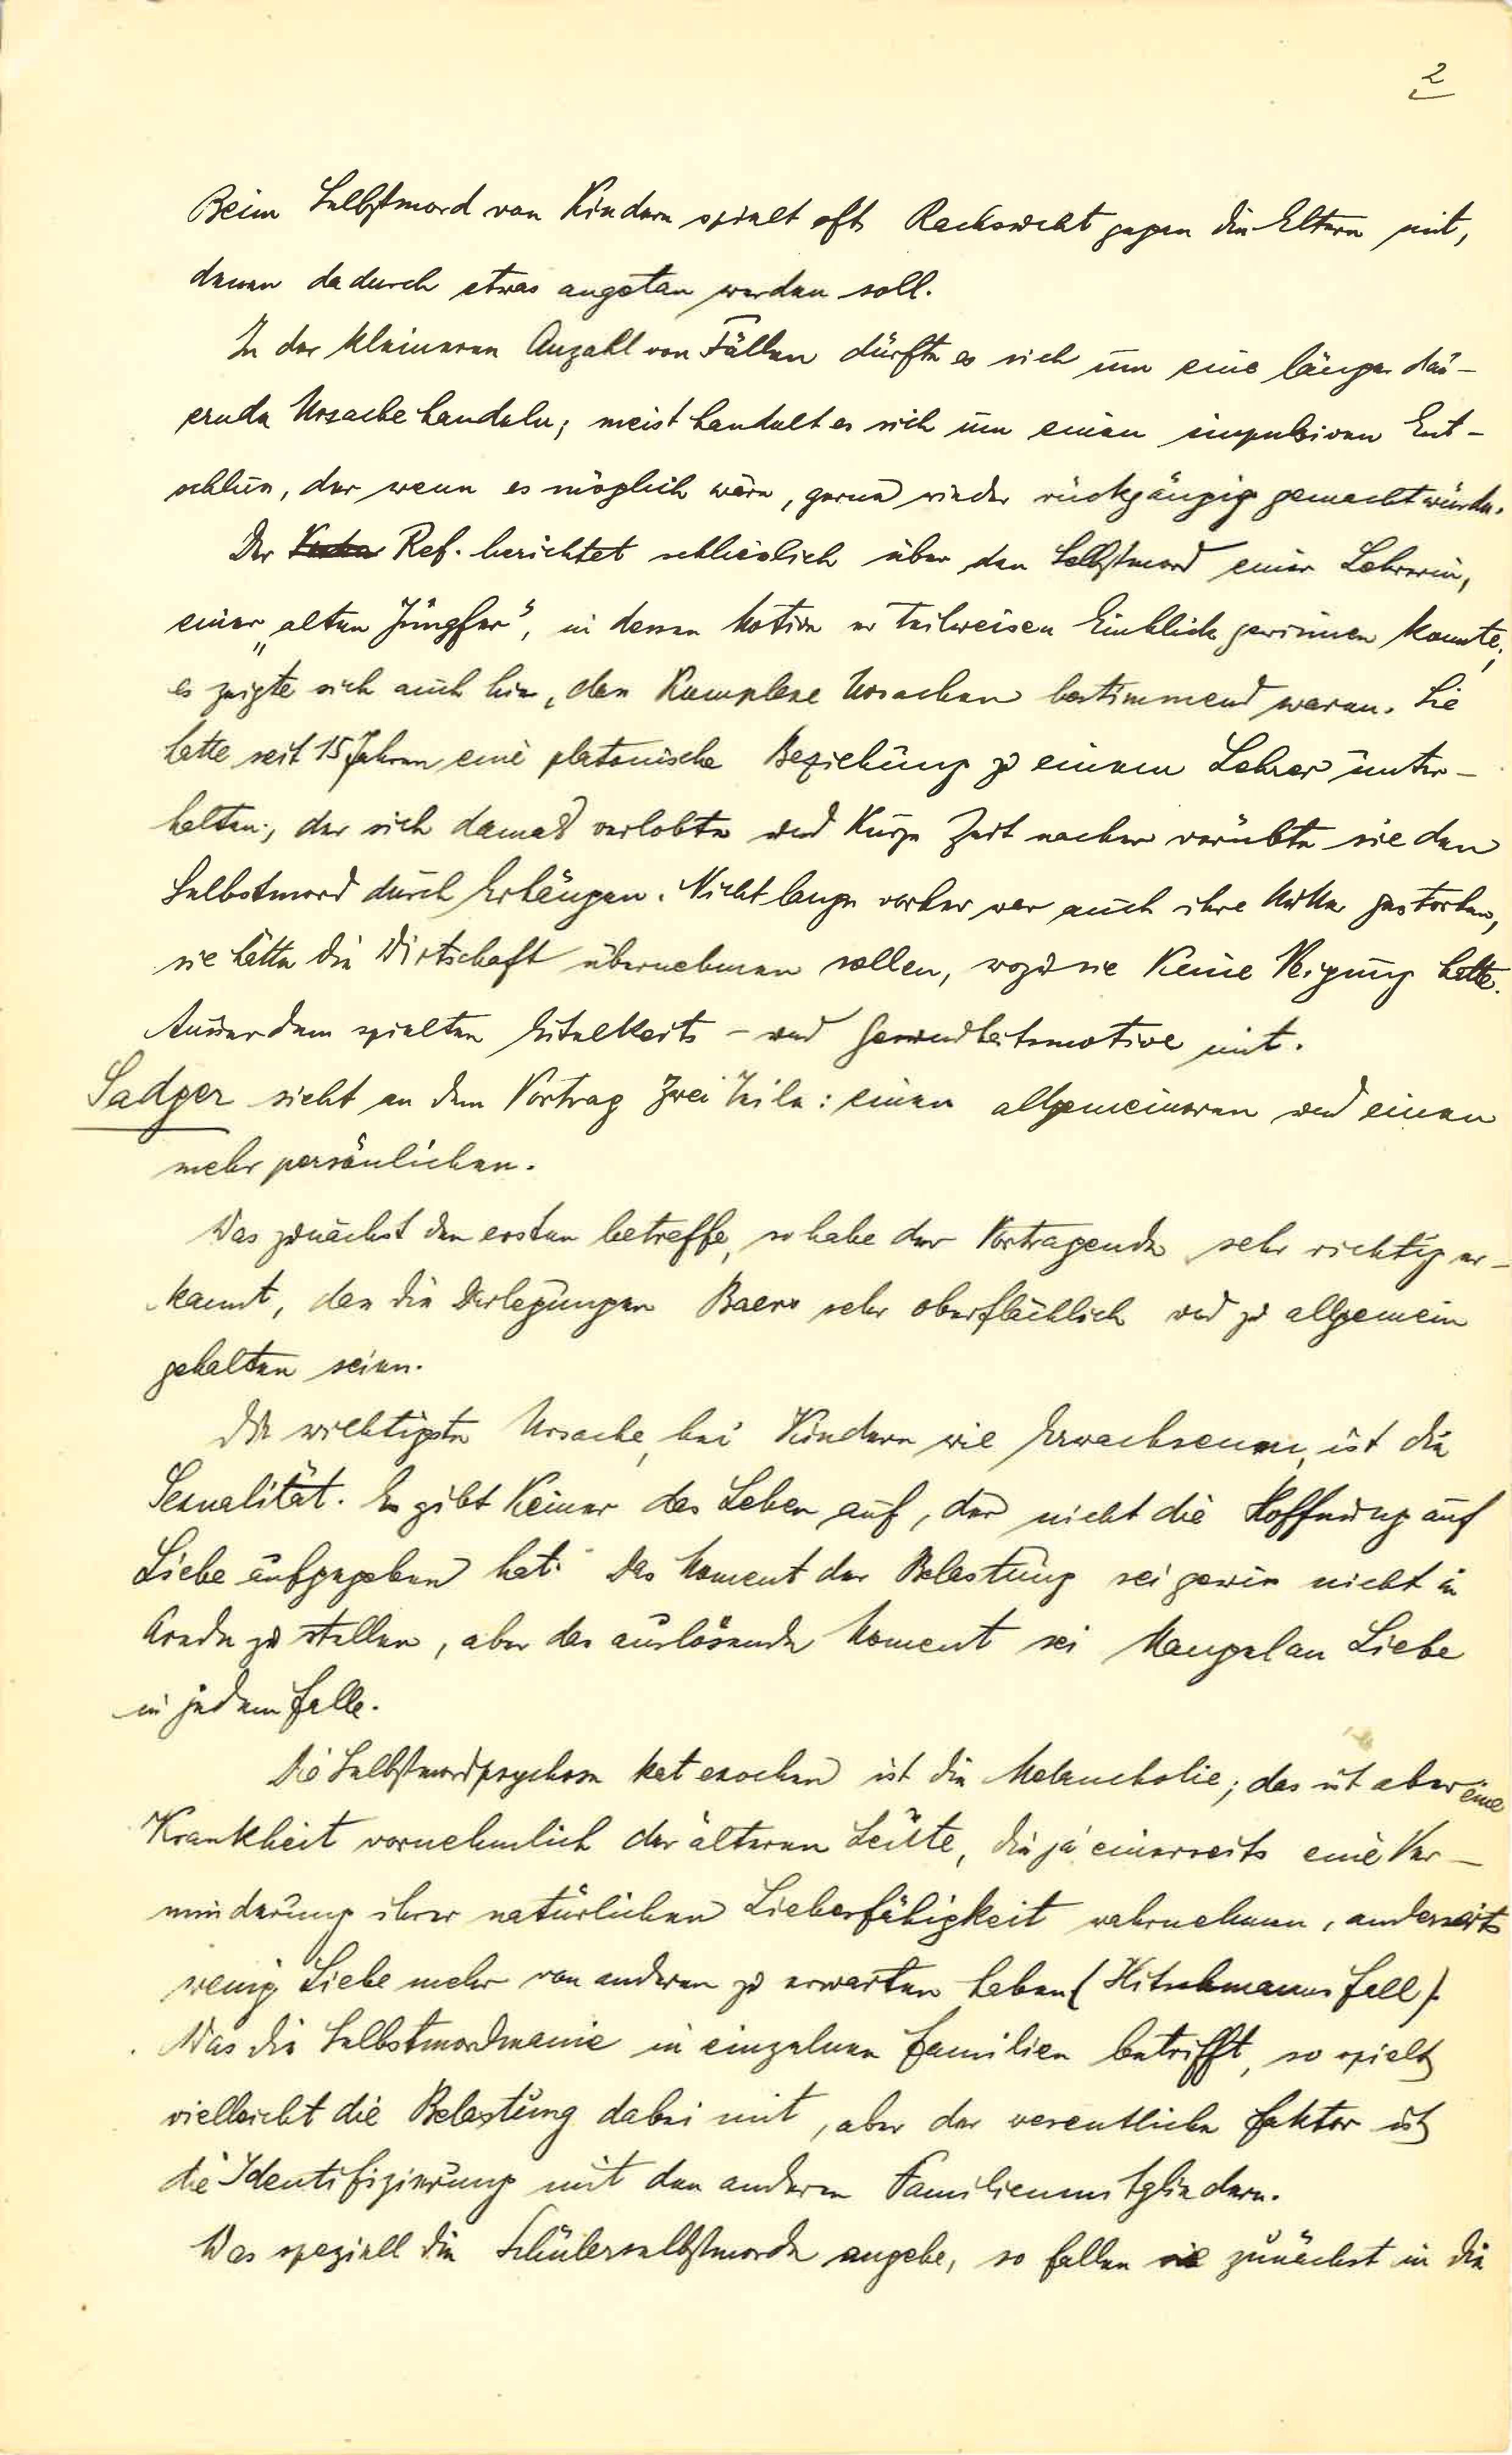 2
Beim Selbstmord von Kindern spielt oft Rachsucht gegen die Eltern mit,
denen dadurch etwas angetan werden soll.
In der kleineren Anzahl von Fällen dürfte es sich um eine länger dau-
ernde Ursache handeln; meist handelt es sich um einen impulsiven Ent-
schluss, der wenn es möglich wäre, gerne wieder rückgängig gemacht würde.
Der Ref. berichtet schliesslich über den Selbstmord einer Lehrerin,
einer „alten Jungfer", in dessen Motive er teilweisen Einblick gewinnen konnte;
es zeigte sich auch hier, dass komplexe Ursachen bestimmend waren. Sie
hatte seit 15 Jahren eine platonische Beziehung zu einem Lehrer unter-
halten; der sich damals verlobte und kurze Zeit nachher verübte sie den
Selbstmord durch Erhängen. Nicht lange vorher war auch ihre Mutter gestorben,
sie hätte die Wirtschaft übernehmen sollen, wozu sie keine Neigung hatte.
Ausserdem spielten Eitelkeits- und Gesundheitsmotive mit.
Sadger sieht an dem Vortrag zwei Teile: einen allgemeineren und einen
mehr persönlichen.
Was zunächst den ersten betreffe, so habe der Vortragende sehr richtig er-
kannt, dass die Darlegungen Baers sehr oberflächlich und zu allgemein
gehalten seien.
Die wichtigste Ursache, bei Kindern wie Erwachsenen, ist die
Sexualität. Es gibt keiner das Leben auf, der nicht die Hoffnung auf
Liebe aufgegeben hat. Das Moment der Belastung sei gewiss nicht in
Abrede zu stellen, aber das auslösende Moment sei Mangel an Liebe
in jedem Falle.
Die Selbstmordpsychose kat exochen ist die Melancholie; das ist aber eine
Krankheit vornehmlich der älteren Leute, die ja einerseits eine Ver-
minderung ihrer natürlichen Liebesfähigkeit wahrnehmen, anderseits
wenig Liebe mehr von anderen zu erwarten haben (Hitschmanns Fall).
Was die Selbstmordmanie in einzelnen Familien betrifft, so spielt
vielleicht die Belastung dabei mit, aber der wesentliche Faktor ist
die Identifizierung mit den anderen Familienmitgliedern.
Was speziell die Schülerselbstmorde angehe, so fallen sie zunächst in die